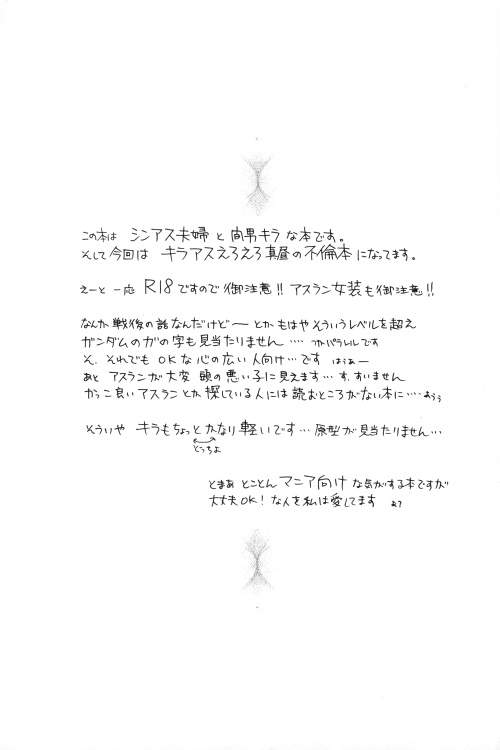 この本は シンアス夫婦 と 間男キラ な本です。
そして今回は キラアスえろえろ真昼の不倫本 になってます。
えーと 一応 R18 ですので 御注意!! アスラン女装も御注意!!
なんか 戦後の話なんだけどー とか もはや そういうレベルを超え
ガンダムのガの字も見当たりません …. つかパラレルです
そ、それでも OK な心の広い 人向け…です はうぁー
あと アスランが 大変 頭の悪い子に見えます… す、すいません
かっこ良いアスランとか探している人には読むところがない本に…. ううぅ
そういや キラもちょっとかなり軽いです… 原型が見当たりません…
どっちよ
とまあ とことん マニア向け な気がする本ですが
大丈夫OK! な人を私は愛してます よ?